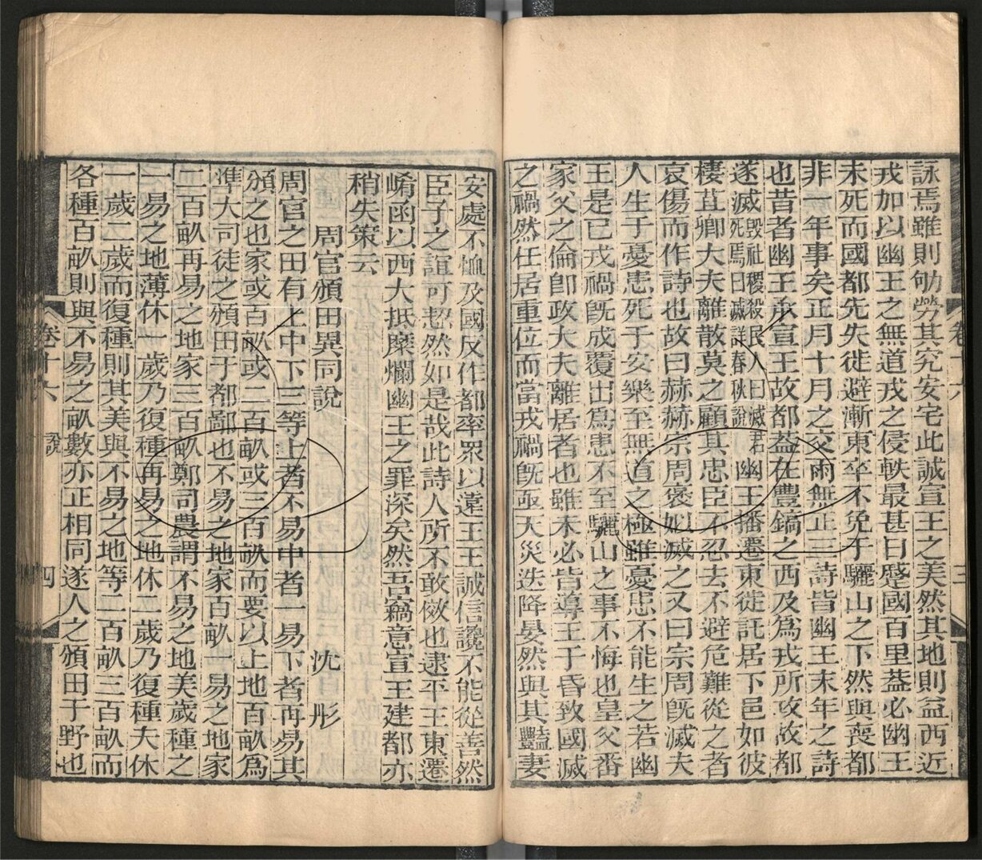 詠焉雖則劬勞其究安宅此誠宣王之美然其地則益西近
戎加以幽王之無道戎之侵軼最甚日蹙國百里葢必幽王
未死而國都先失徙避漸東卒不免于驪山之下然與喪都
非一年事矣正月十月之交雨無正三詩皆幽王末年之詩
也昔者幽王承宣王故都葢在豐鎬之西及爲戎所攻故都
遂滅毀社稷殺民人曰滅君死焉曰滅詳春秋說幽王播遷東徙託居下邑如彼
棲苴卿大夫離散莫之顧其忠臣不忍去不避危難從之者
哀傷而作詩也故曰赫赫宗周褒姒滅之又曰宗周旣滅夫
人生于憂患死于安樂至無道之極雖憂患不能生之若幽
王是已戎禍旣成覆出爲患不至驪山之事不悔也皇父番
家父之倫卽政大夫離居者也雖未必皆導王于昏致國滅
之禍然任居重位而當戎禍旣亟天災迭降晏然與其豔妻
安處不恤及國反作都率眾以遠王王誠信讒不能從善然
臣子之誼可恝然如是哉此詩人所不敢傚也逮平王東遷
崤函以西大抵糜爛幽王之罪深矣然吾竊意宣王建都亦
稍失策云
周官頒田異同說
沈彤
周官之田有上中下三等上者不易中者一易下者再易其
頒之也家或百畝或二百畝或三百畝而要以上地百畝爲
準大司徒之頒田于都鄙也不易之地家百畝一易之地家
二百畝再易之地家三百畝鄭司農謂不易之地美歲種之
一易之地薄休一歲乃復種再易之地休二歲乃復種夫休
一歲二歲而復種則其美與不易之地等二百畝三百畝而
各種百畝則與不易之畝數亦正相同遂人之頒田于野也
卷十六
說
四